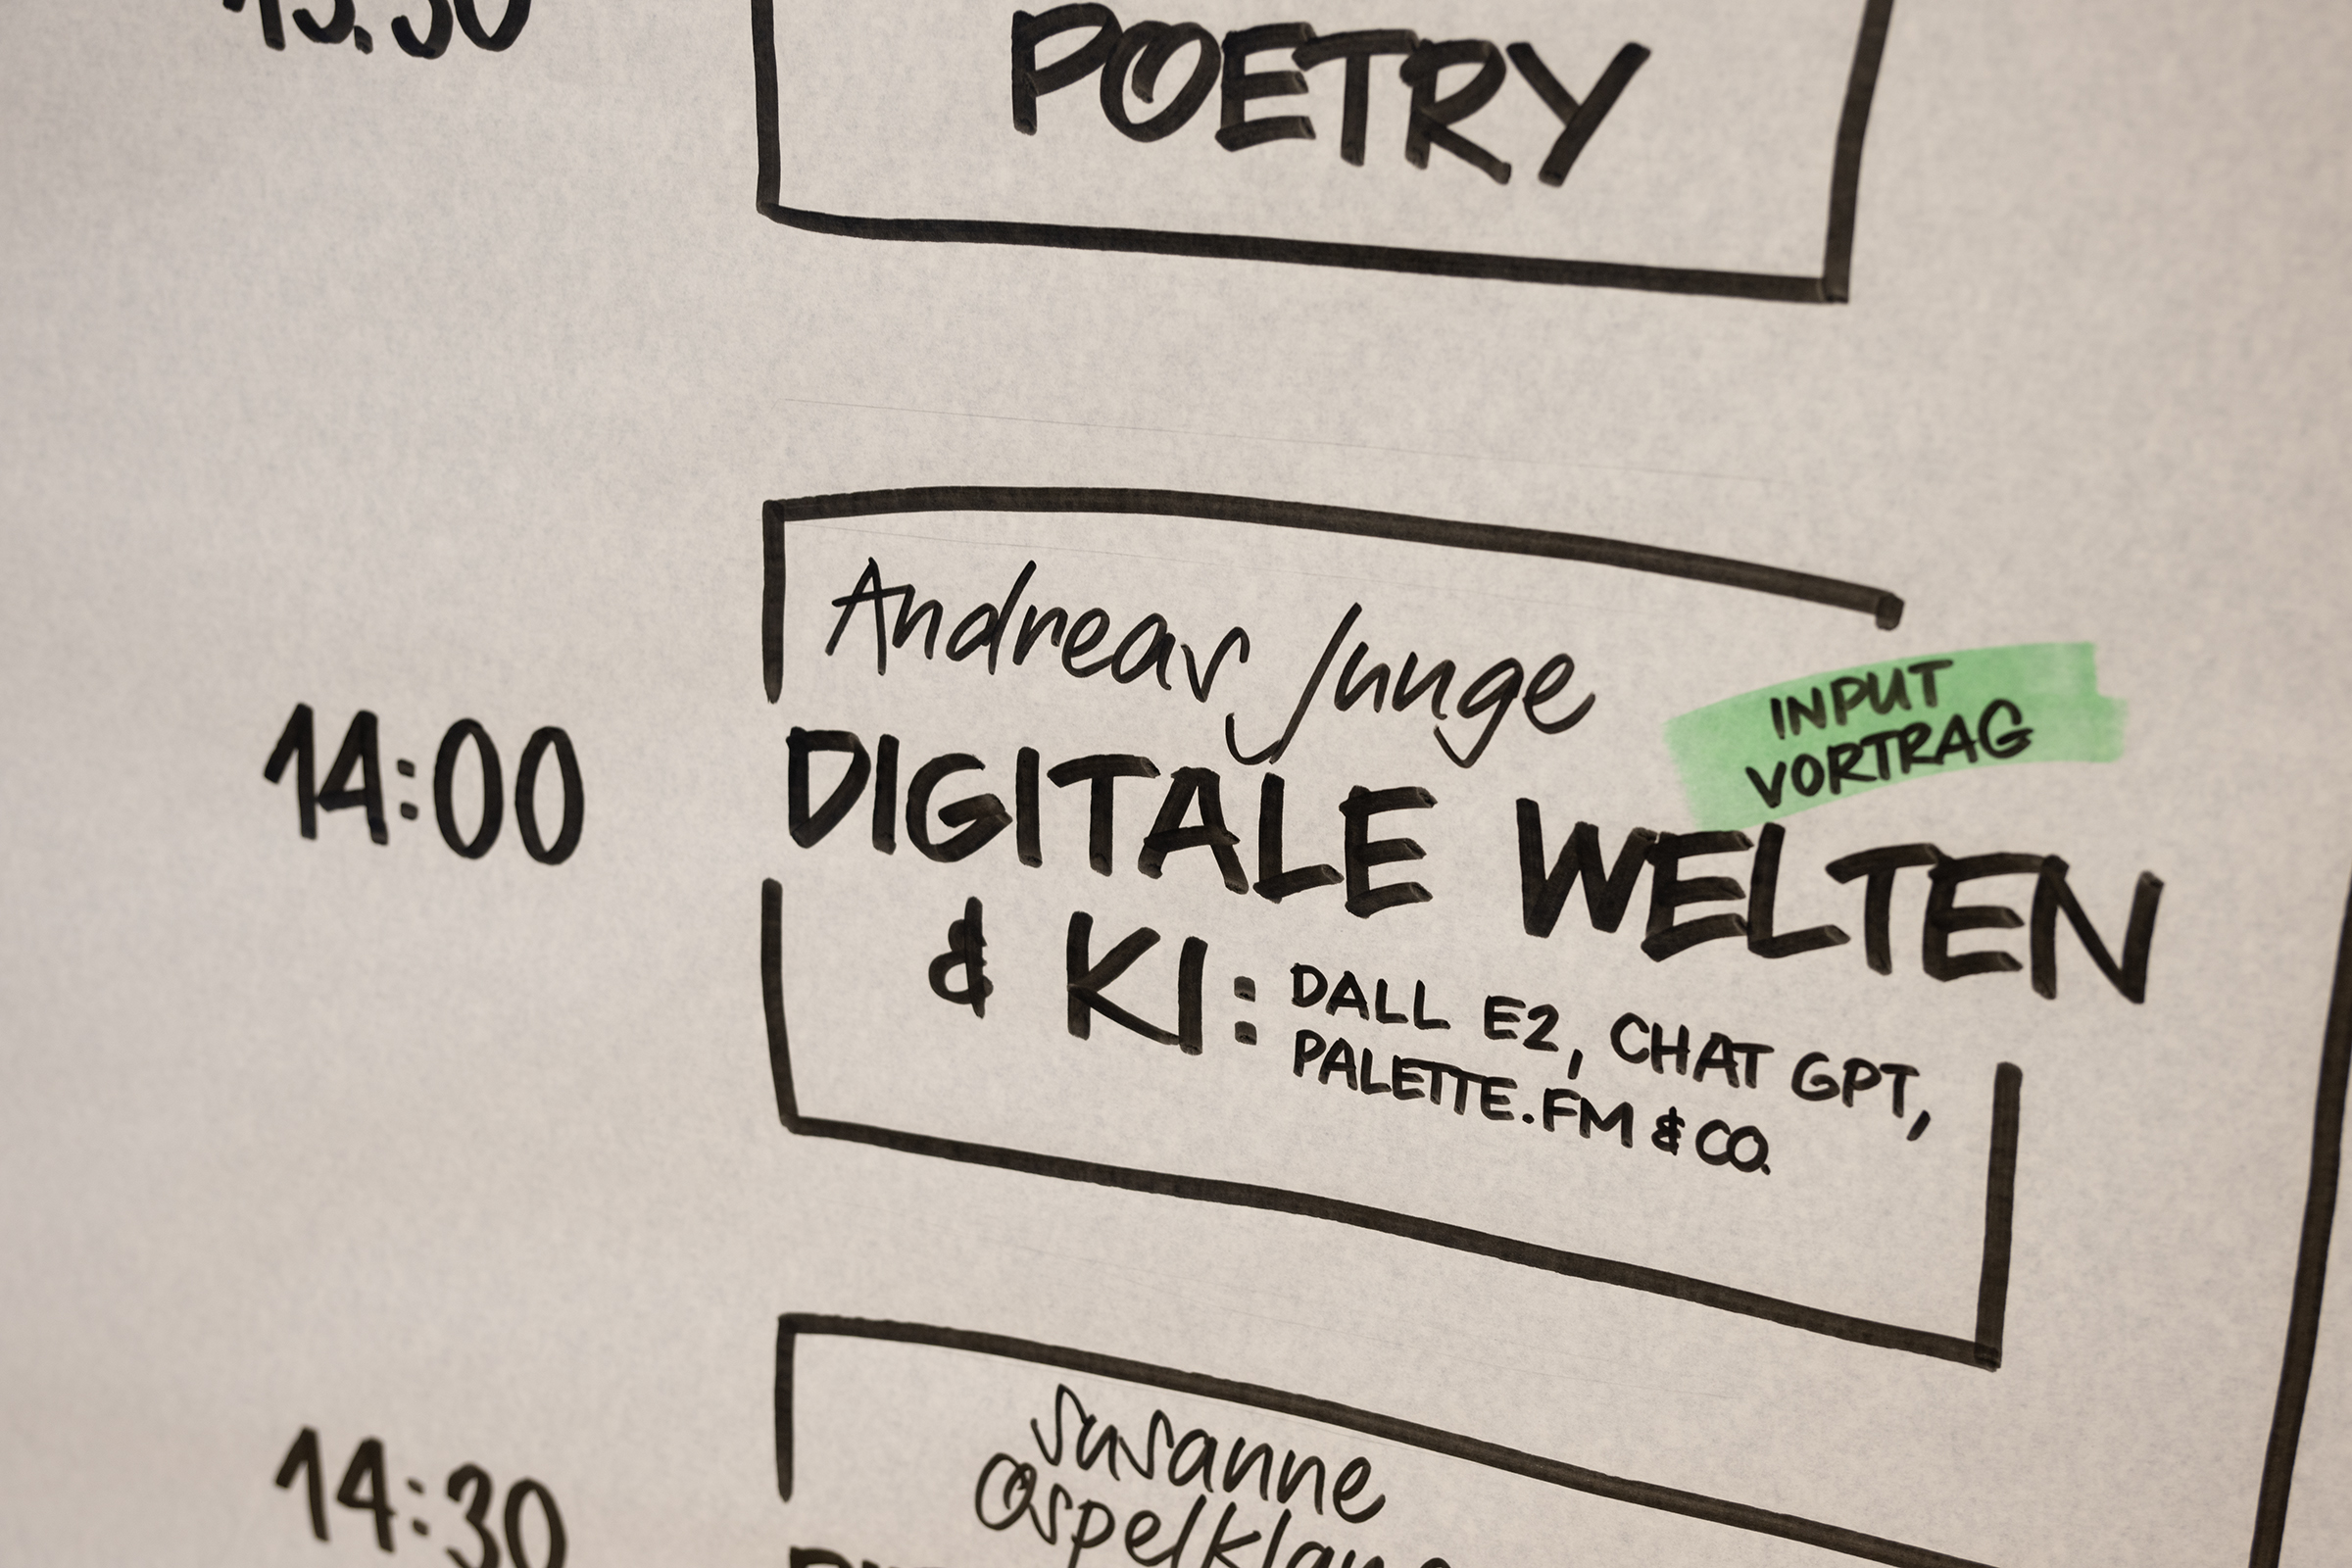 13:30
POETRY
Andreas Junge
INPUT
VORTRAG
14:00
DIGITALE WELTEN
& KI: DALL E2, CHAT GPT,
PALETTE.FM & CO.
14:30
Susanne